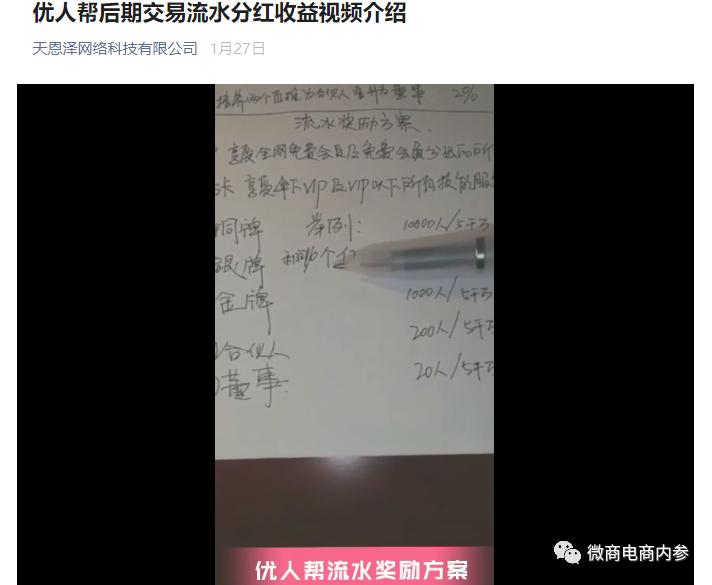 优人帮后期交易流水分红收益视频介绍
天恩泽网络科技有限公司 1月27日
培养两个直推为合伙人 晋升为董事 2%
流水奖励方案
享受全网免费会员及免费会员分出的所
卡 享受伞下VIP及VIP以下所有技能服
铜牌 举例: 10000人/5千万
银牌 利润10个亿
金牌 1000人/5千万
合伙人 200人/5千万
董事 20人/5千万
优人帮流水奖励方案
微商电商内参